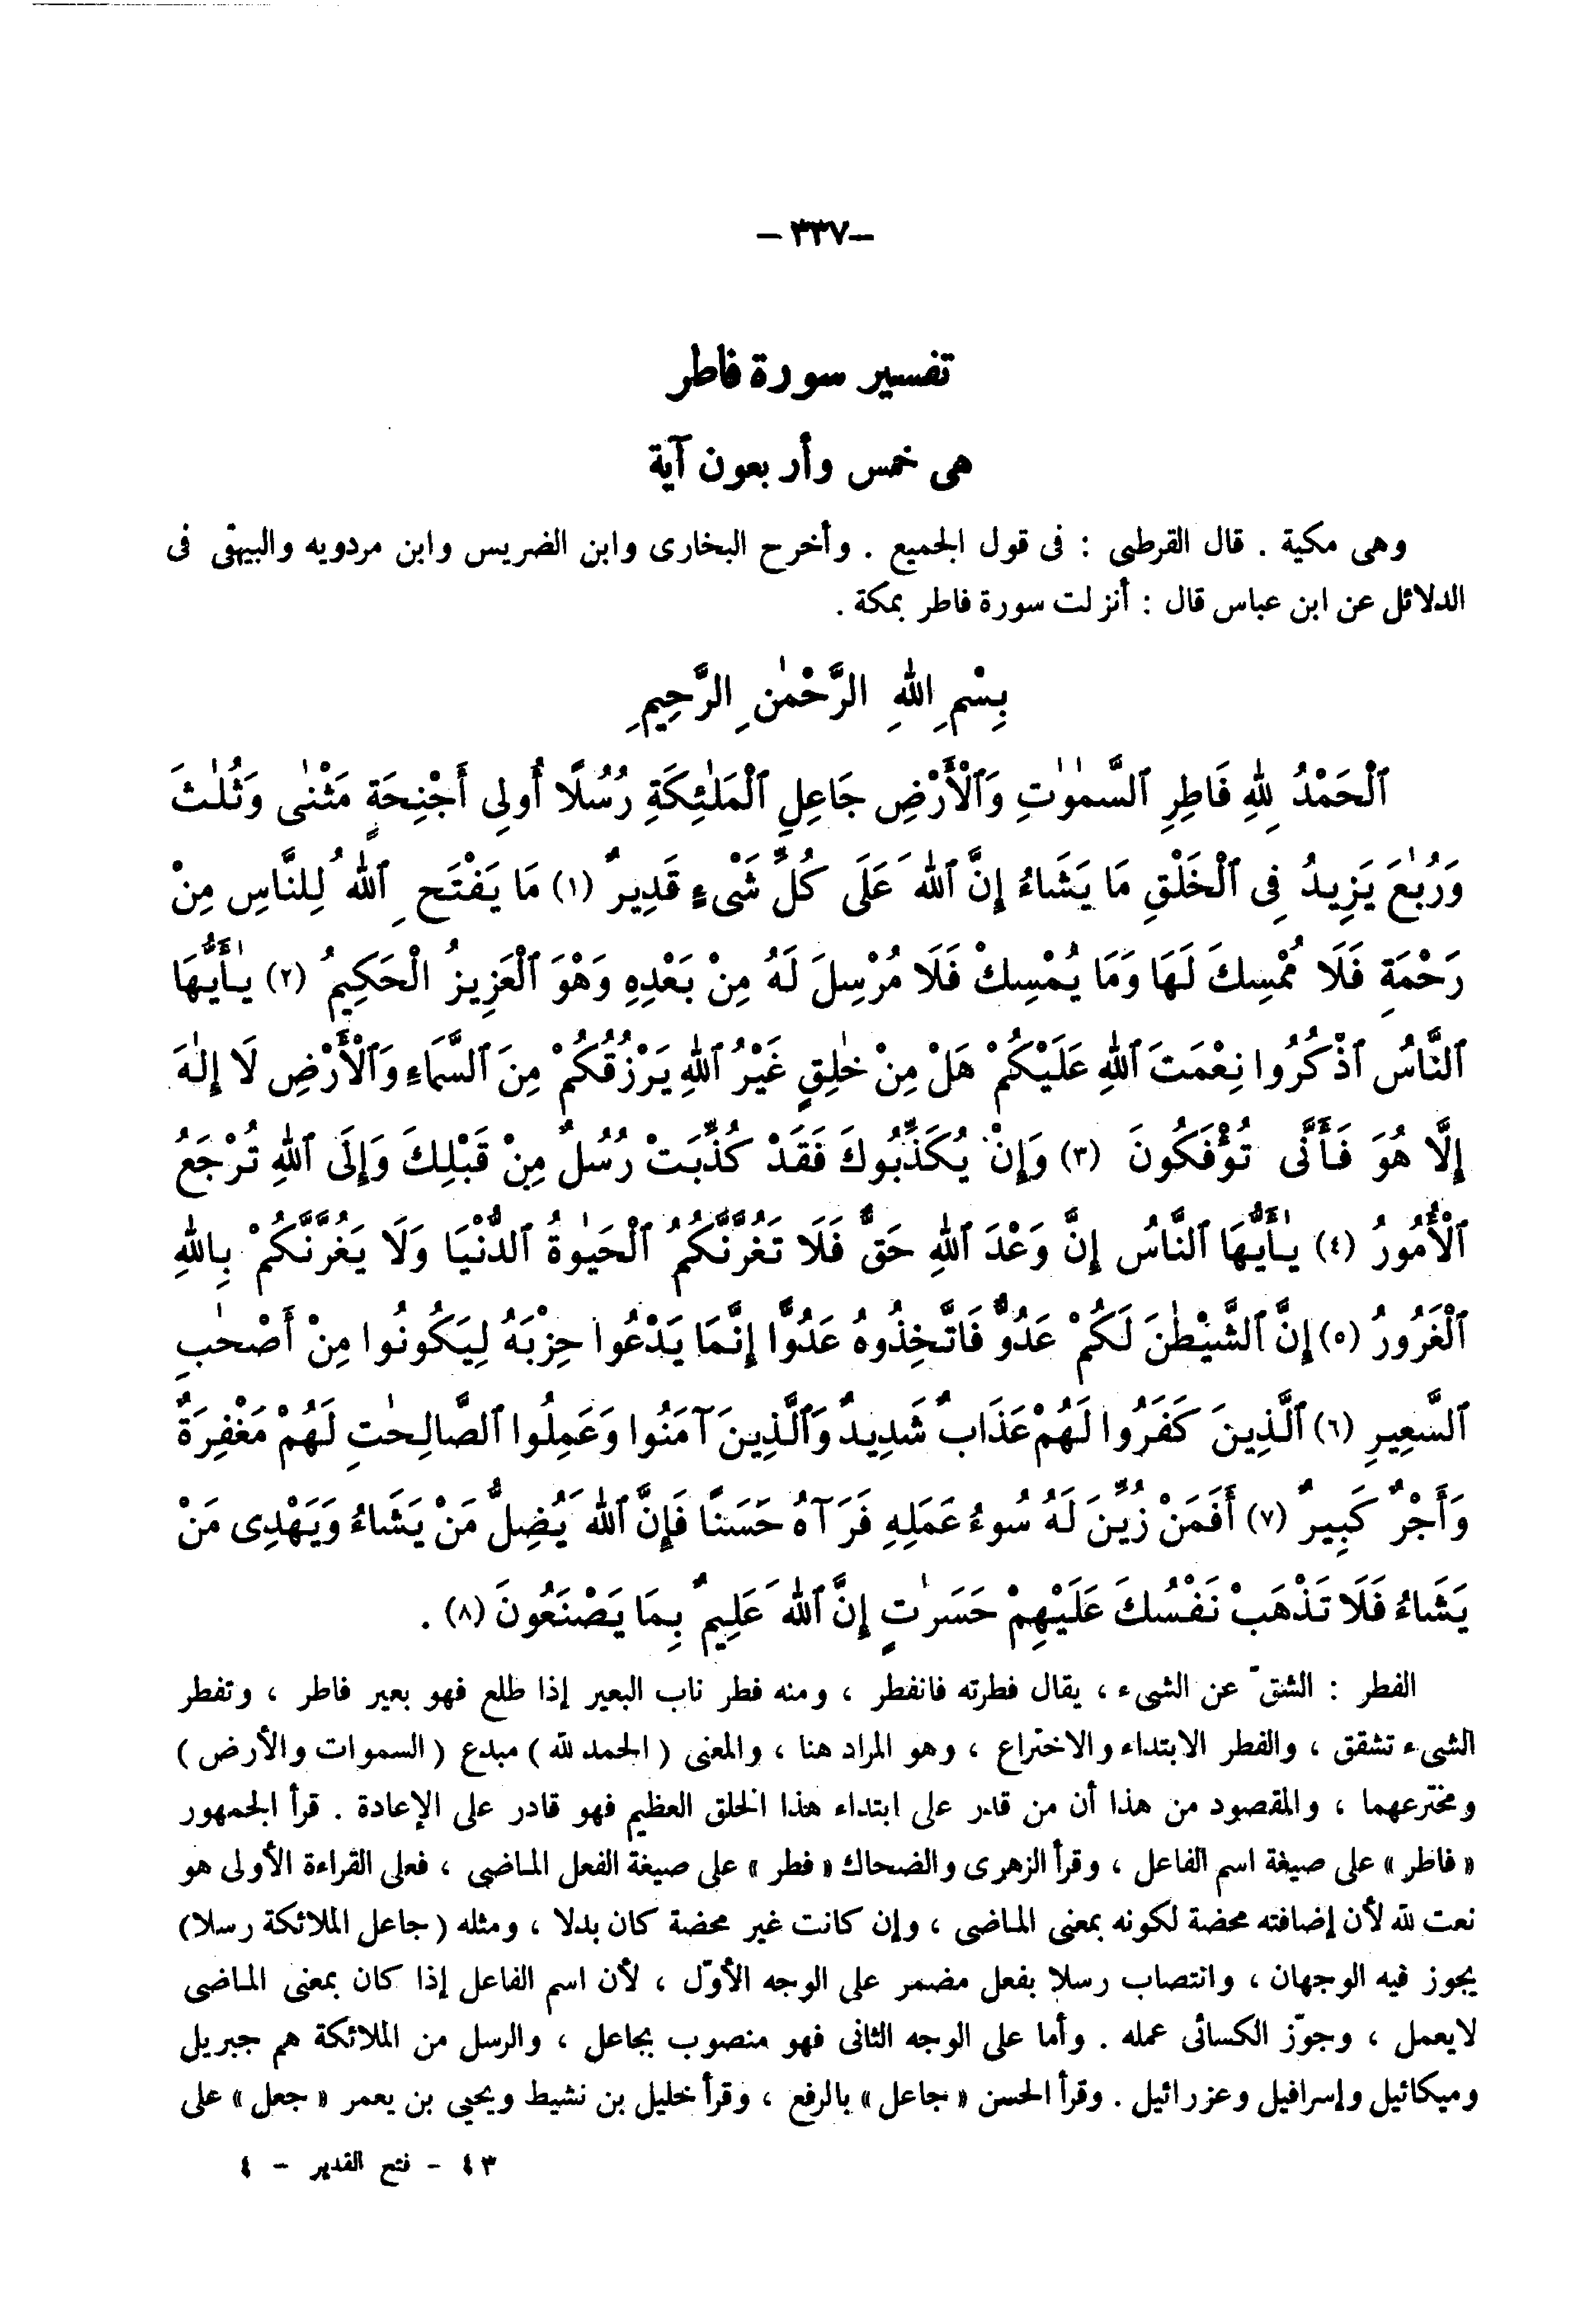 – ٣٣٧ –
تفسير سورة فاطر
هى خمس وأربعون آية
وهى مكية . قال القرطبى : فى قول الجميع . وأخرج البخارى وابن الضريس وابن مردويه والبيهقى فى
الدلائل عن ابن عباس قال : أنزلت سورة فاطر بمكة .
بِسْمِ اللهِ الرَّحْمٰنِ الرَّحِيمِ
ٱلْحَمْدُ لِلّٰهِ فَاطِرِ ٱلسَّمٰوٰتِ وَٱلْأَرْضِ جَاعِلِ ٱلْمَلٰئِكَةِ رُسُلًا أُولِى أَجْنِحَةٍ مَثْنٰى وَثُلٰثَ
وَرُبٰعَ يَزِيدُ فِى ٱلْخَلْقِ مَا يَشَاءُ إِنَّ ٱللهَ عَلَى كُلِّ شَىْءٍ قَدِيرٌ (١) مَا يَفْتَحِ ٱللهُ لِلنَّاسِ مِنْ
رَحْمَةٍ فَلَا مُمْسِكَ لَهَا وَمَا يُمْسِكْ فَلَا مُرْسِلَ لَهُ مِنْ بَعْدِهِ وَهُوَ ٱلْعَزِيزُ الْحَكِيمُ (٢) يٰأَيُّهَا
ٱلنَّاسُ ٱذْكُرُوا نِعْمَتَ ٱللهِ عَلَيْكُمْ هَلْ مِنْ خٰلِقٍ غَيْرُ ٱللهِ يَرْزُقُكُمْ مِنَ ٱلسَّمَاءِ وَٱلْأَرْضِ لَا إِلٰهَ
إِلَّا هُوَ فَأَنَّى تُؤْفَكُونَ (٣) وَإِنْ يُكَذِّبُوكَ فَقَدْ كُذِّبَتْ رُسُلٌ مِنْ قَبْلِكَ وَإِلَى ٱللهِ تُرْجَعُ
ٱلْأُمُورُ (٤) يٰأَيُّهَا ٱلنَّاسُ إِنَّ وَعْدَ ٱللهِ حَقٌّ فَلَا تَغُرَّنَّكُمُ ٱلْحَيٰوةُ ٱلدُّنْيَا وَلَا يَغُرَّنَّكُمْ بِاللهِ
ٱلْغَرُورُ (٥) إِنَّ ٱلشَّيْطٰنَ لَكُمْ عَدُوٌّ فَاتَّخِذُوهُ عَدُوًّا إِنَّمَا يَدْعُوا حِزْبَهُ لِيَكُونُوا مِنْ أَصْحٰبِ
ٱلسَّعِيرِ (٦) ٱلَّذِينَ كَفَرُوا لَهُمْ عَذَابٌ شَدِيدٌ وَٱلَّذِينَ آمَنُوا وَعَمِلُوا ٱلصَّالِحٰتِ لَهُمْ مَغْفِرَةٌ
وَأَجْرٌ كَبِيرٌ (٧) أَفَمَنْ زُيِّنَ لَهُ سُوءُ عَمَلِهِ فَرَآهُ حَسَنًا فَإِنَّ ٱللهَ يُضِلُّ مَنْ يَشَاءُ وَيَهْدِى مَنْ
يَشَاءُ فَلَا تَذْهَبْ نَفْسُكَ عَلَيْهِمْ حَسَرٰتٍ إِنَّ ٱللهَ عَلِيمٌ بِمَا يَصْنَعُونَ (٨) .
الفطر : الشقّ عن الشىء ، يقال فطرته فانفطر ، ومنه فطر ناب البعير إذا طلع فهو بعير فاطر ، وتفطر
الشىء تشقق ، والفطر الابتداء والاختراع ، وهو المراد هنا ، والمعنى ( الحمد لله ) مبدع ( السموات والأرض )
ومخترعهما ، والمقصود من هذا أن من قدر على ابتداء هذا الخلق العظيم فهو قادر على الإعادة . قرأ الجمهور
« فاطر » على صيغة اسم الفاعل ، وقرأ الزهرى والضحاك « فطر » على صيغة الفعل الماضى ، فعلى القراءة الأولى هو
نعت لله لأن إضافته محضة لكونه بمعنى الماضى ، وإن كانت غير محضة كان بدلا ، ومثله ( جاعل الملائكة رسلا )
يجوز فيه الوجهان ، وانتصاب رسلا بفعل مضمر على الوجه الأوّل ، لأن اسم الفاعل إذا كان بمعنى الماضى
لايعمل ، وجوّز الكسائى عمله . وأما على الوجه الثانى فهو منصوب بجاعل ، والرسل من الملائكة هم جبريل
وميكائيل وإسرافيل وعزرائيل . وقرأ الحسن « جاعل » بالرفع ، وقرأ خليل بن نشيط ويحيى بن يعمر « جعل » على
٤٣ – فتح القدير – ٤